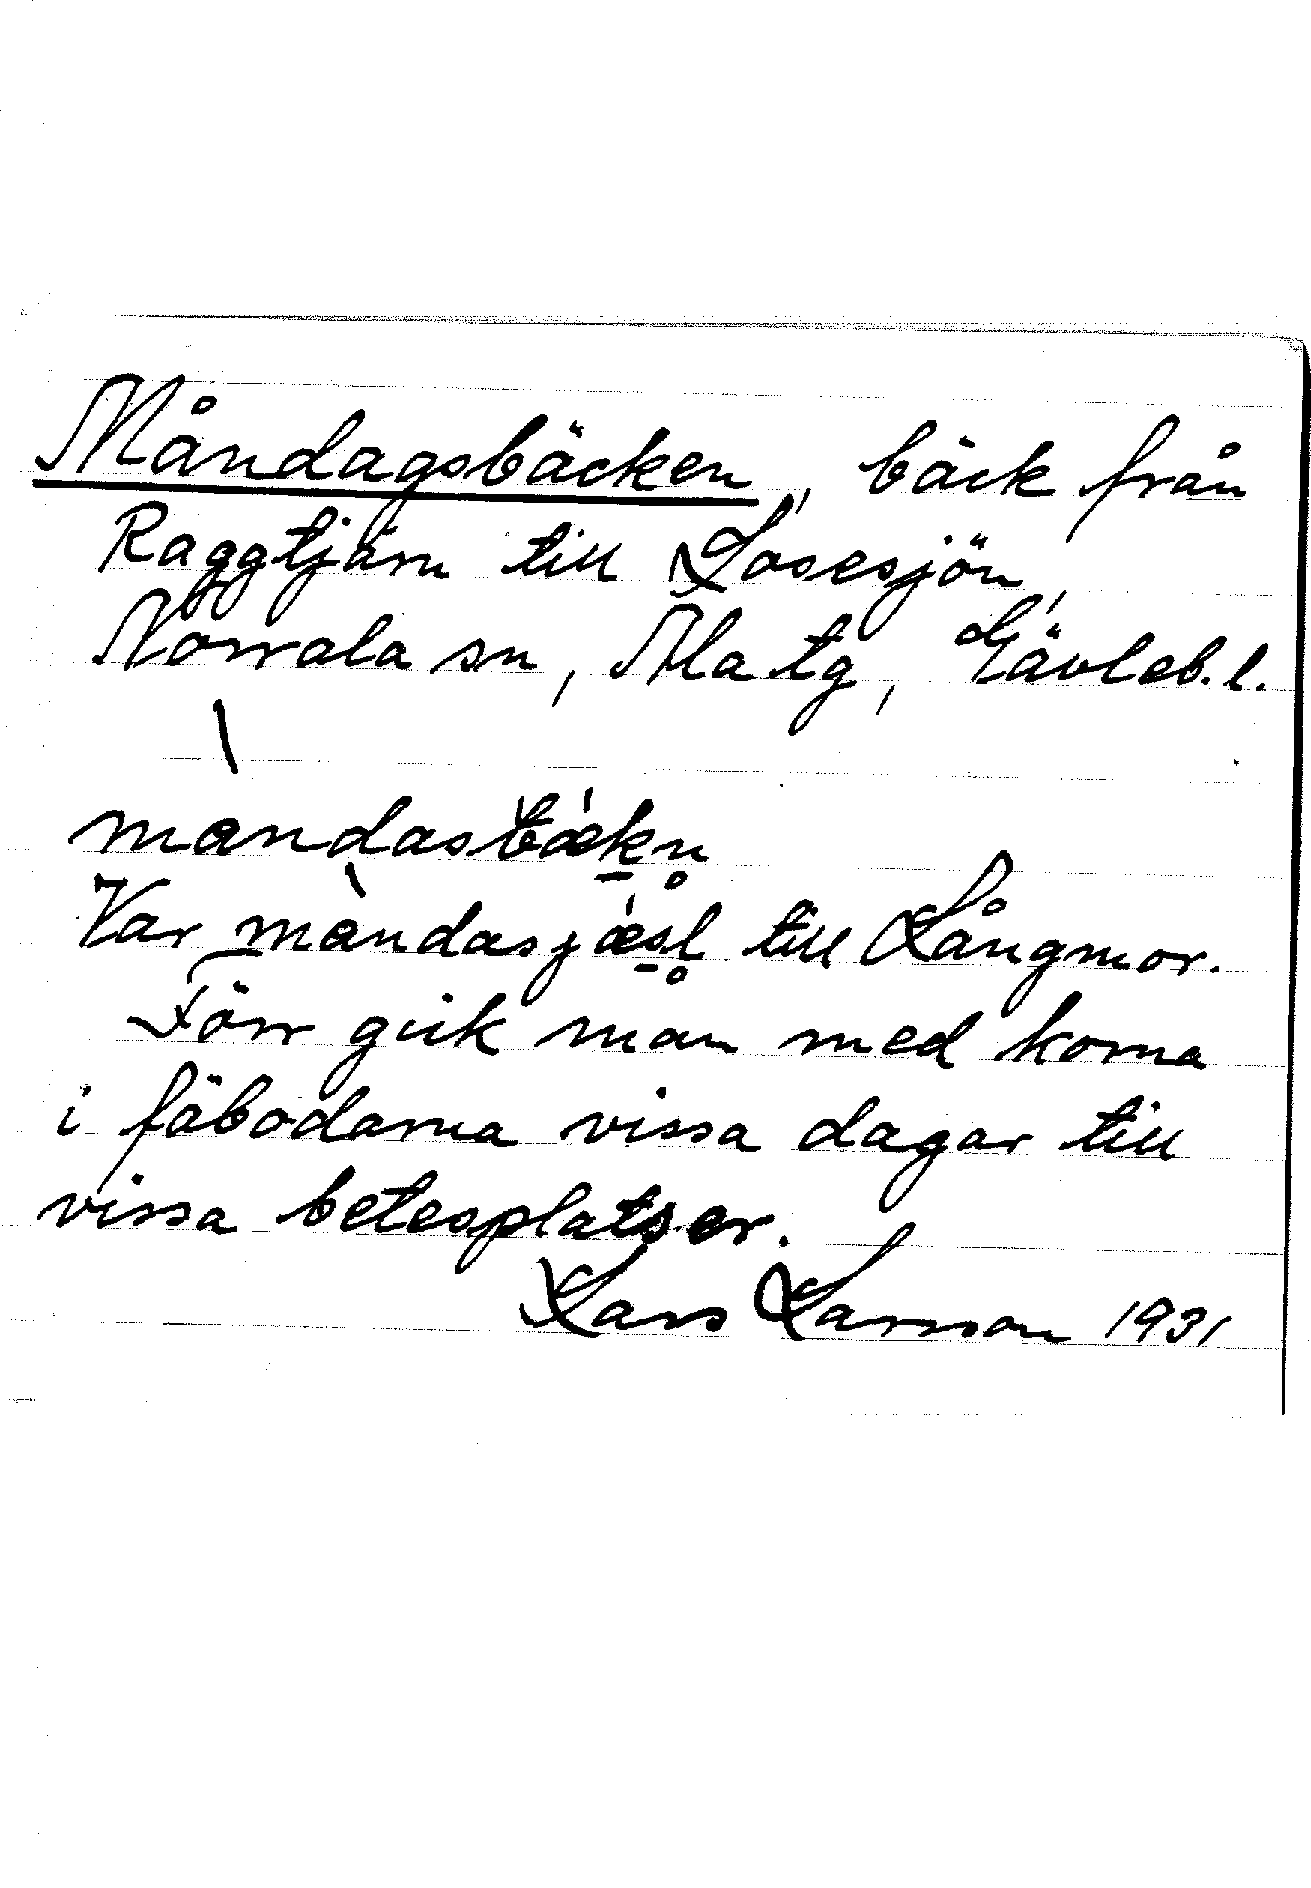 Måndagsbäcken, bäck från
Raggtjärn till Losesjön,
Norrala sn, Ala tg, Gävleb. l.
mandasbækn̥
Var mandasjæsl̥ till Långmor.
Förr gick man med korna
i fäbodarna vissa dagar till
vissa betesplatser.
Lars Larsson 1931